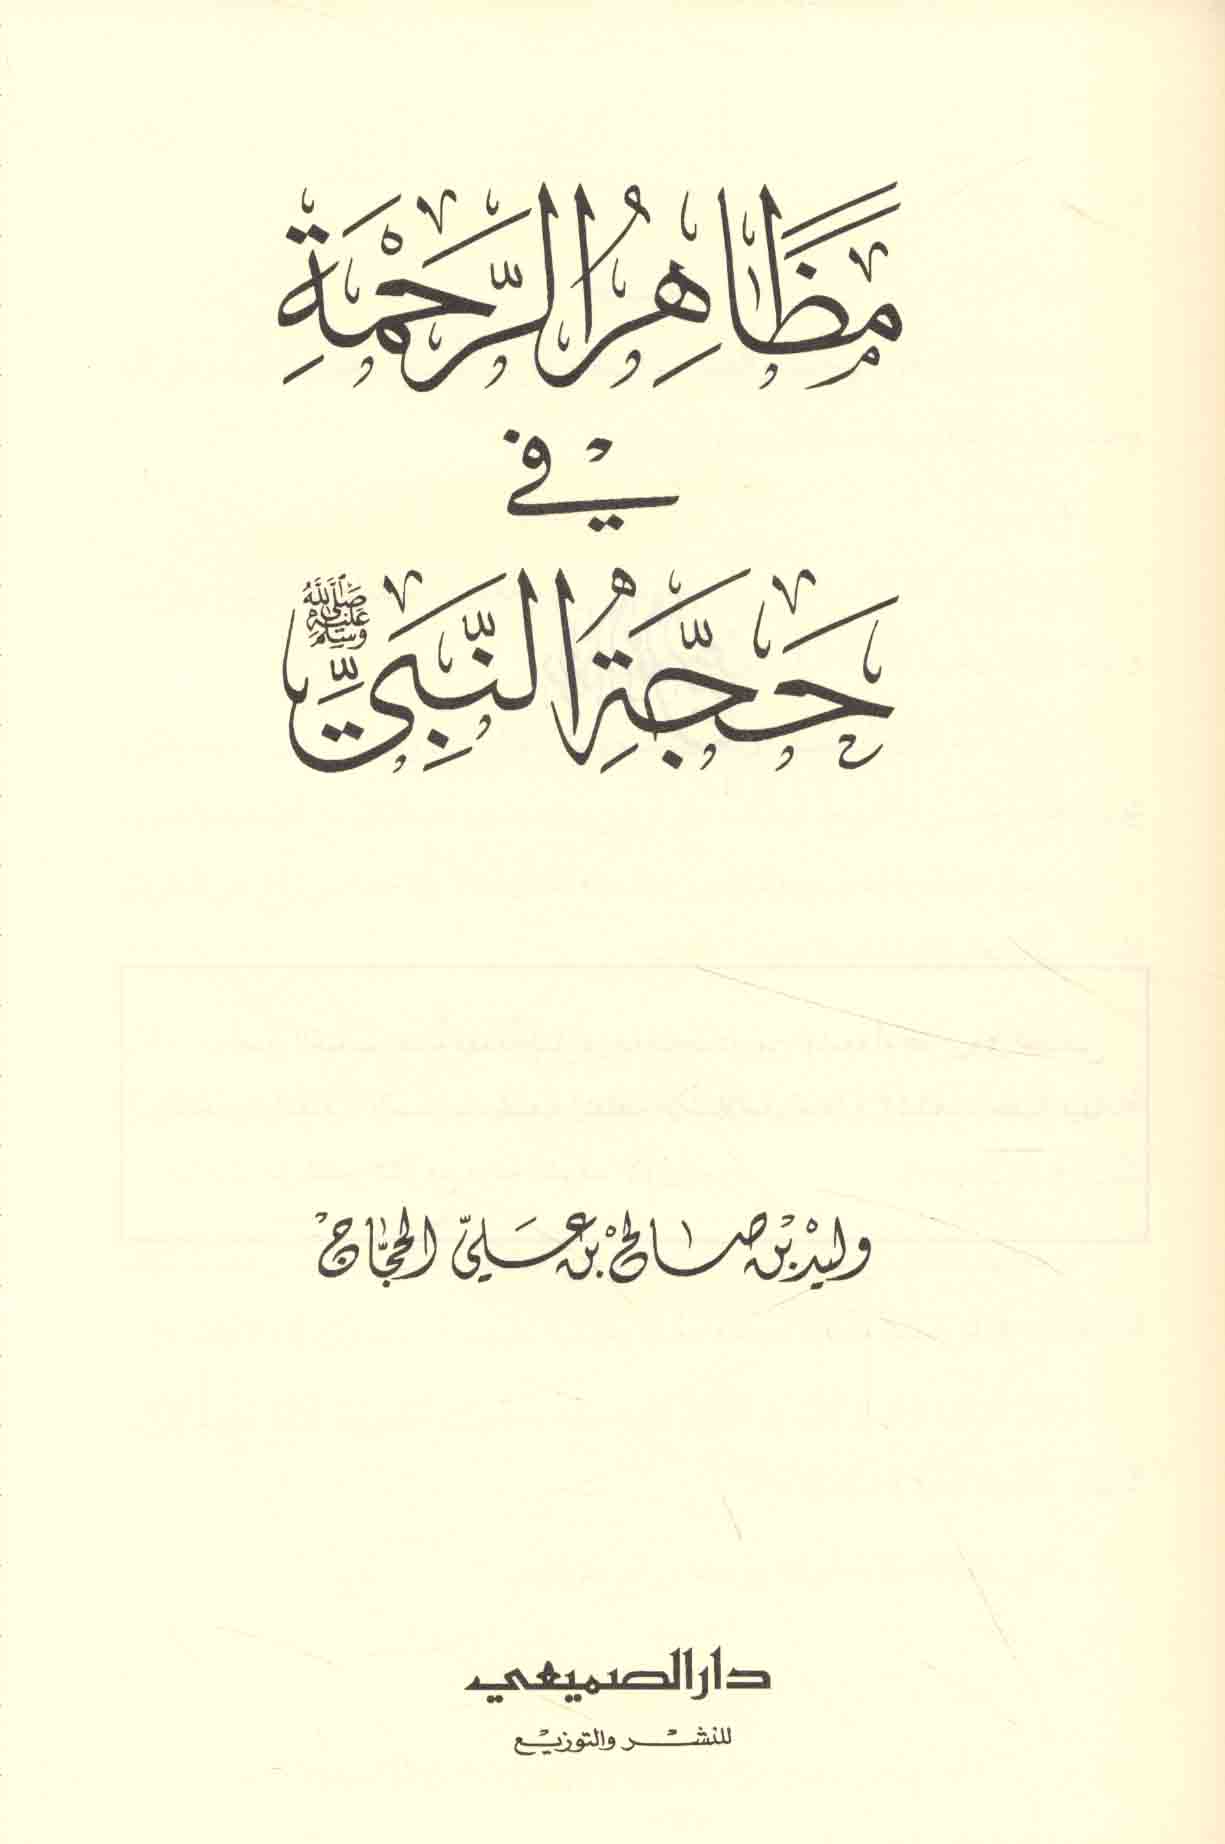 مَظَاهِرُ الرَّحْمَةِ
في
حَجَّةِ النَّبِيِّ ﷺ
وليد بن صالح بن علي الحجاج
دار الصميعي
للنشر والتوزيع